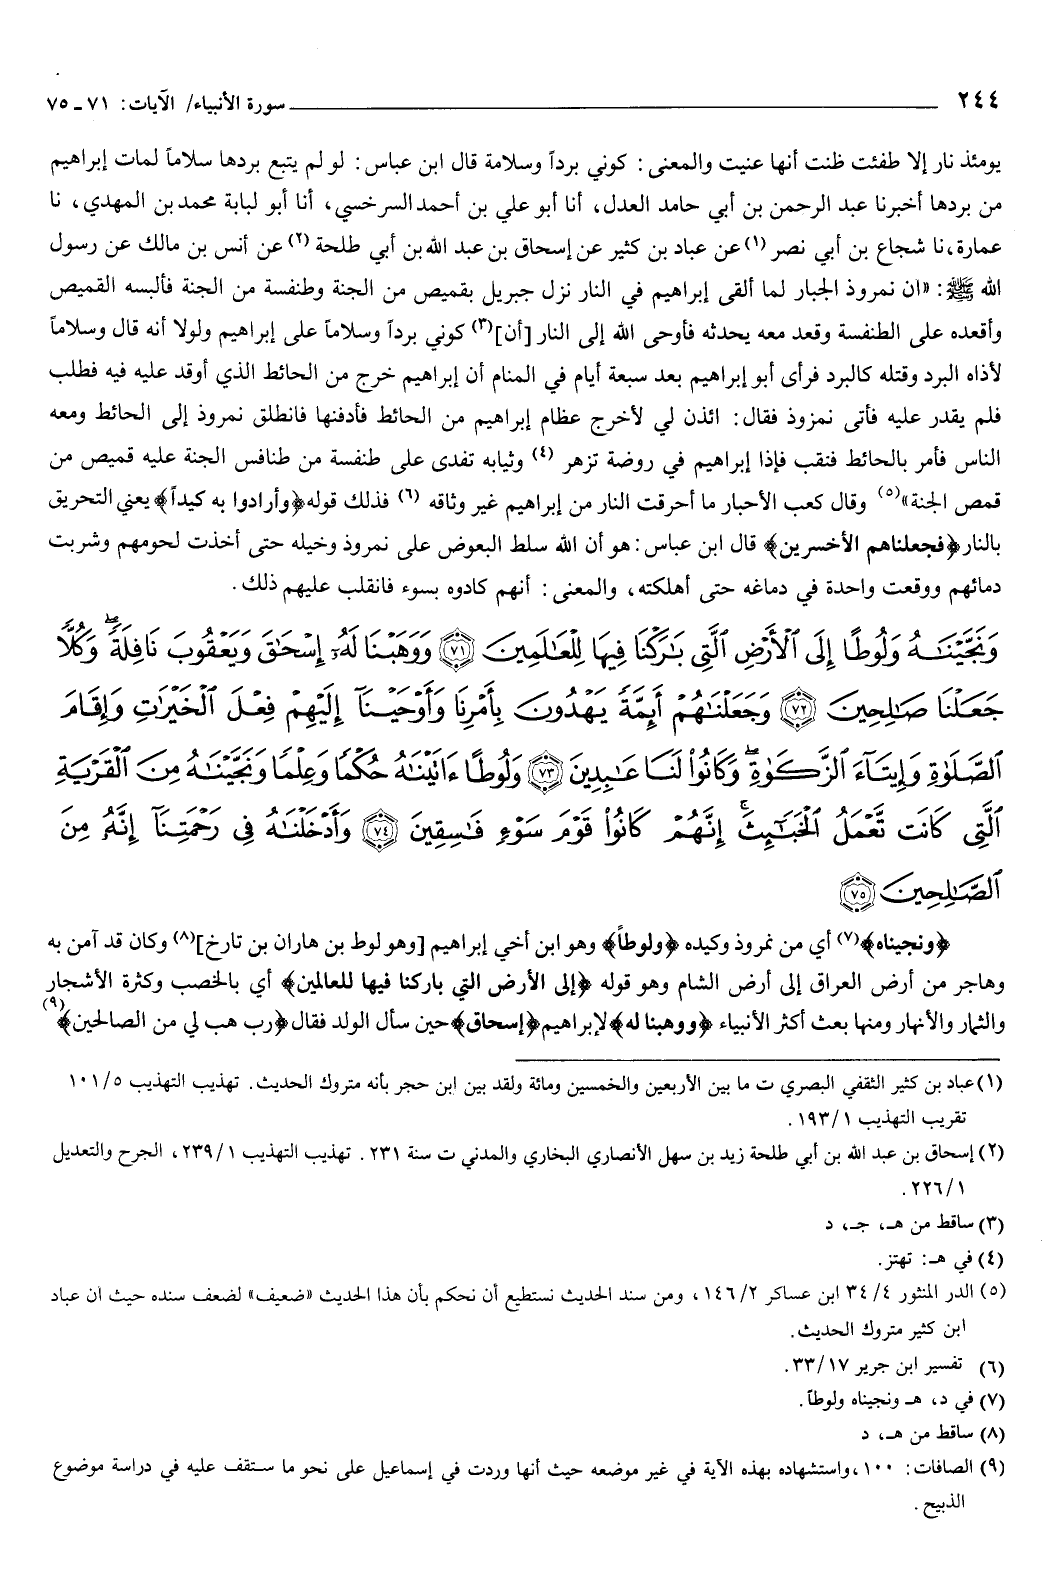 ٢٤٤ سورة الأنبياء/ الآيات: ٧١ ـ ٧٥
يومئذ نار إلا طفئت ظنت أنها عنيت والمعنى: كوني برداً وسلامة قال ابن عباس: لو لم يتبع بردها سلاماً لمات إبراهيم
من بردها أخبرنا عبد الرحمن بن أبي حامد العدل، أنا أبو علي بن أحمد السرخسي، أنا أبو لبابة محمد بن المهدي، نا
عمارة، نا شجاع بن أبي نصر (١) عن عباد بن كثير عن إسحاق بن عبد الله بن أبي طلحة (٢) عن أنس بن مالك عن رسول
الله ﷺ: «ان نمروذ الجبار لما ألقى إبراهيم في النار نزل جبريل بقميص من الجنة وطنفسة من الجنة فألبسه القميص
وأقعده على الطنفسة وقعد معه يحدثه فأوحى الله إلى النار [أن] (٣) كوني برداً وسلاماً على إبراهيم ولولا أنه قال وسلاماً
لأذاه البرد وقتله كالبرد فرأى أبو إبراهيم بعد سبعة أيام في المنام أن إبراهيم خرج من الحائط الذي أوقد عليه فيه فطلب
فلم يقدر عليه فأتى نمزوذ فقال: ائذن لي لأخرج عظام إبراهيم من الحائط فأدفنها فانطلق نمروذ إلى الحائط ومعه
الناس فأمر بالحائط فنقب فإذا إبراهيم في روضة تزهر (٤) وثيابه تفدى على طنفسة من طنافس الجنة عليه قميص من
قمص الجنة» (٥) وقال كعب الأحبار ما أحرقت النار من إبراهيم غير وثاقه (٦) فذلك قوله ﴿وأرادوا به كيداً﴾ يعني التحريق
بالنار ﴿فجعلناهم الأخسرين﴾ قال ابن عباس: هو أن الله سلط البعوض على نمروذ وخيله حتى أخذت لحومهم وشربت
دمائهم ووقعت واحدة في دماغه حتى أهلكته، والمعنى: أنهم كادوه بسوء فانقلب عليهم ذلك.
وَنَجَّيْنَـٰهُ وَلُوطًا إِلَى ٱلْأَرْضِ ٱلَّتِى بَـٰرَكْنَا فِيهَا لِلْعَـٰلَمِينَ ﴿٧١﴾ وَوَهَبْنَا لَهُۥٓ إِسْحَـٰقَ وَيَعْقُوبَ نَافِلَةً ۖ وَكُلًّا
جَعَلْنَا صَـٰلِحِينَ ﴿٧٢﴾ وَجَعَلْنَـٰهُمْ أَئِمَّةً يَهْدُونَ بِأَمْرِنَا وَأَوْحَيْنَآ إِلَيْهِمْ فِعْلَ ٱلْخَيْرَٰتِ وَإِقَامَ
ٱلصَّلَوٰةِ وَإِيتَآءَ ٱلزَّكَوٰةِ ۖ وَكَانُوا۟ لَنَا عَـٰبِدِينَ ﴿٧٣﴾ وَلُوطًا ءَاتَيْنَـٰهُ حُكْمًا وَعِلْمًا وَنَجَّيْنَـٰهُ مِنَ ٱلْقَرْيَةِ
ٱلَّتِى كَانَت تَّعْمَلُ ٱلْخَبَـٰٓئِثَ ۗ إِنَّهُمْ كَانُوا۟ قَوْمَ سَوْءٍ فَـٰسِقِينَ ﴿٧٤﴾ وَأَدْخَلْنَـٰهُ فِى رَحْمَتِنَآ إِنَّهُۥ مِنَ
ٱلصَّـٰلِحِينَ ﴿٧٥﴾
﴿ونجيناه﴾ (٧) أي من نمروذ وكيده ﴿ولوطاً﴾ وهو ابن أخي إبراهيم [وهو لوط بن هاران بن تارخ] (٨) وكان قد آمن به
وهاجر من أرض العراق إلى أرض الشام وهو قوله ﴿إلى الأرض التي باركنا فيها للعالمين﴾ أي بالخصب وكثرة الأشجار
والثمار والأنهار ومنها بعث أكثر الأنبياء ﴿ووهبنا له﴾ لإبراهيم ﴿إسحاق﴾ حين سأل الولد فقال ﴿رب هب لي من الصالحين﴾ (٩)
(١) عباد بن كثير الثقفي البصري ت ما بين الأربعين والخمسين ومائة ولقد بين ابن حجر بأنه متروك الحديث. تهذيب التهذيب ١٠١/٥
تقريب التهذيب ١٩٣/١.
(٢) إسحاق بن عبد الله بن أبي طلحة زيد بن سهل الأنصاري البخاري والمدني ت سنة ٢٣١. تهذيب التهذيب ٢٣٩/١، الجرح والتعديل
٢٢٦/١.
(٣) ساقط من هـ، جـ، د
(٤) في هـ: تهتز.
(٥) الدر المنثور ٣٤/٤ ابن عساكر ١٤٦/٢، ومن سند الحديث نستطيع أن نحكم بأن هذا الحديث «ضعيف» لضعف سنده حيث ان عباد
ابن كثير متروك الحديث.
(٦) تفسير ابن جرير ٣٣/١٧.
(٧) في د، هـ ونجيناه ولوطاً.
(٨) ساقط من هـ، د
(٩) الصافات: ١٠٠، واستشهاده بهذه الآية في غير موضعه حيث أنها وردت في إسماعيل على نحو ما ستقف عليه في دراسة موضوع
الذبيح.